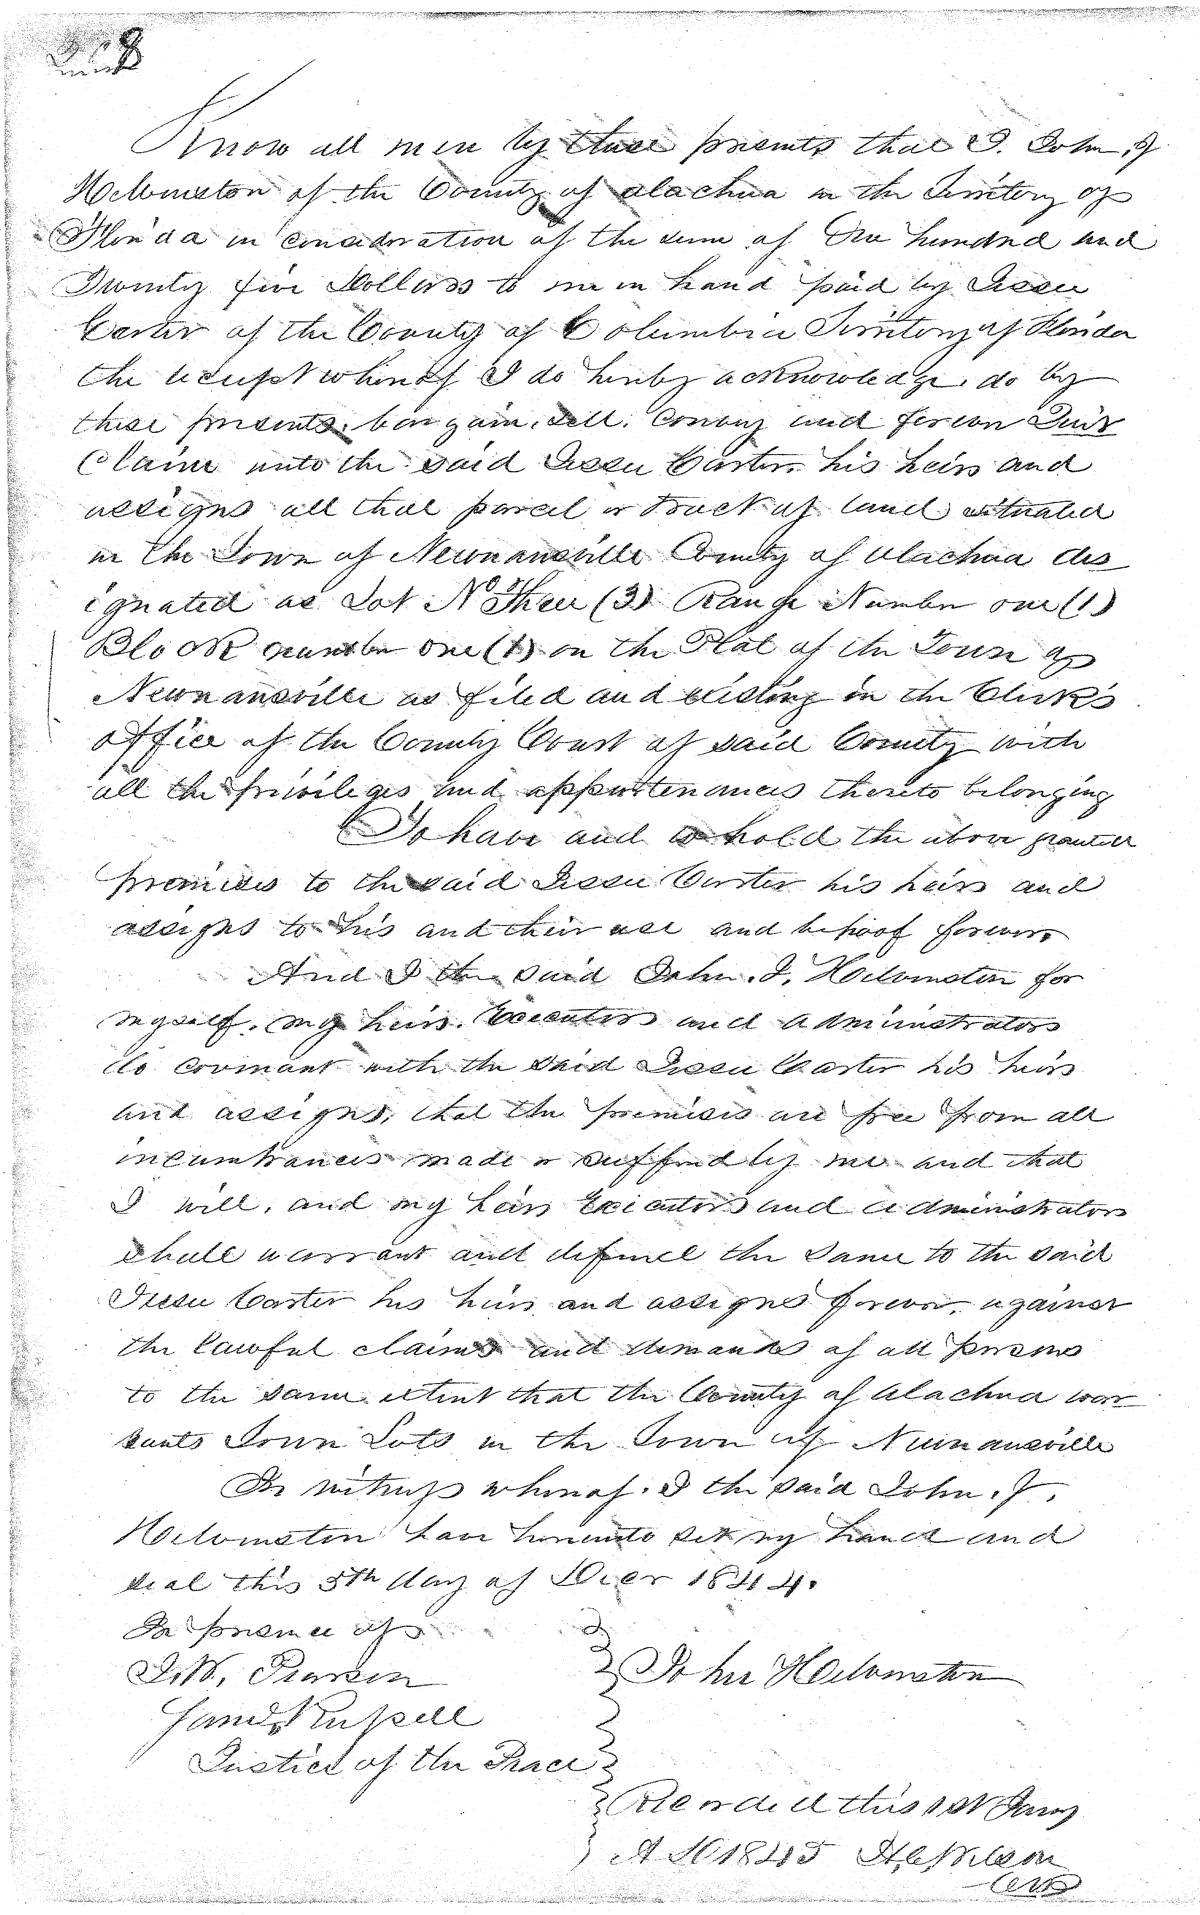 Know all men by these presents that I. John, J
Helvenston of the County of Alachua in the Territory of
Florida in consideration of the sum of One hundred and
Twenty five Dollars to me in hand paid by Jesse
Carter of the County of Columbia Territory of Florida
the receipt whereof I do hereby acknowledge. do by
these presents. bargain. sell. convey and forever Quit
Claim unto the said Jesse Carter. his heirs and
assigns all that parcel or tract of land situated
in the Town of Newnansville County of Alachua des
ignated as Lot No Three (3) Range Number one (1)
Block number one (1) on the Plat of the Town of
Newnansville as filed and existing in the Clerk's
office of the County Court of said County with
all the privileges and appurtenances thereto belonging
To have and to hold the above granted
premises to the said Jesse Carter his heirs and
assigns to his and their use and behoof forever.
And I the said John. J. Helvenston for
myself. my heirs. Executors and administrators
do covenant with the said Jesse Carter his heirs
and assigns, that the premises are free from all
incumbrances made or suffered by me and that
I will, and my heirs Executors and administrators
shall warrant and defend the same to the said
Jesse Carter his heirs and assigns forever. against
the lawful claims and demands of all persons
to the same extent that the County of Alachua war
rants Town Lots in the Town of Newnansville
In witness whereof. I the said John. J.
Helvenston have hereunto set my hand and
seal this 5th day of Decr 1844.
In presence of
J. W. Pearson
John Helvenston
Saml Russell
Justice of the Peace
Recorded this 1st Jany
A D 1845 H. C. Wilson
Clerk